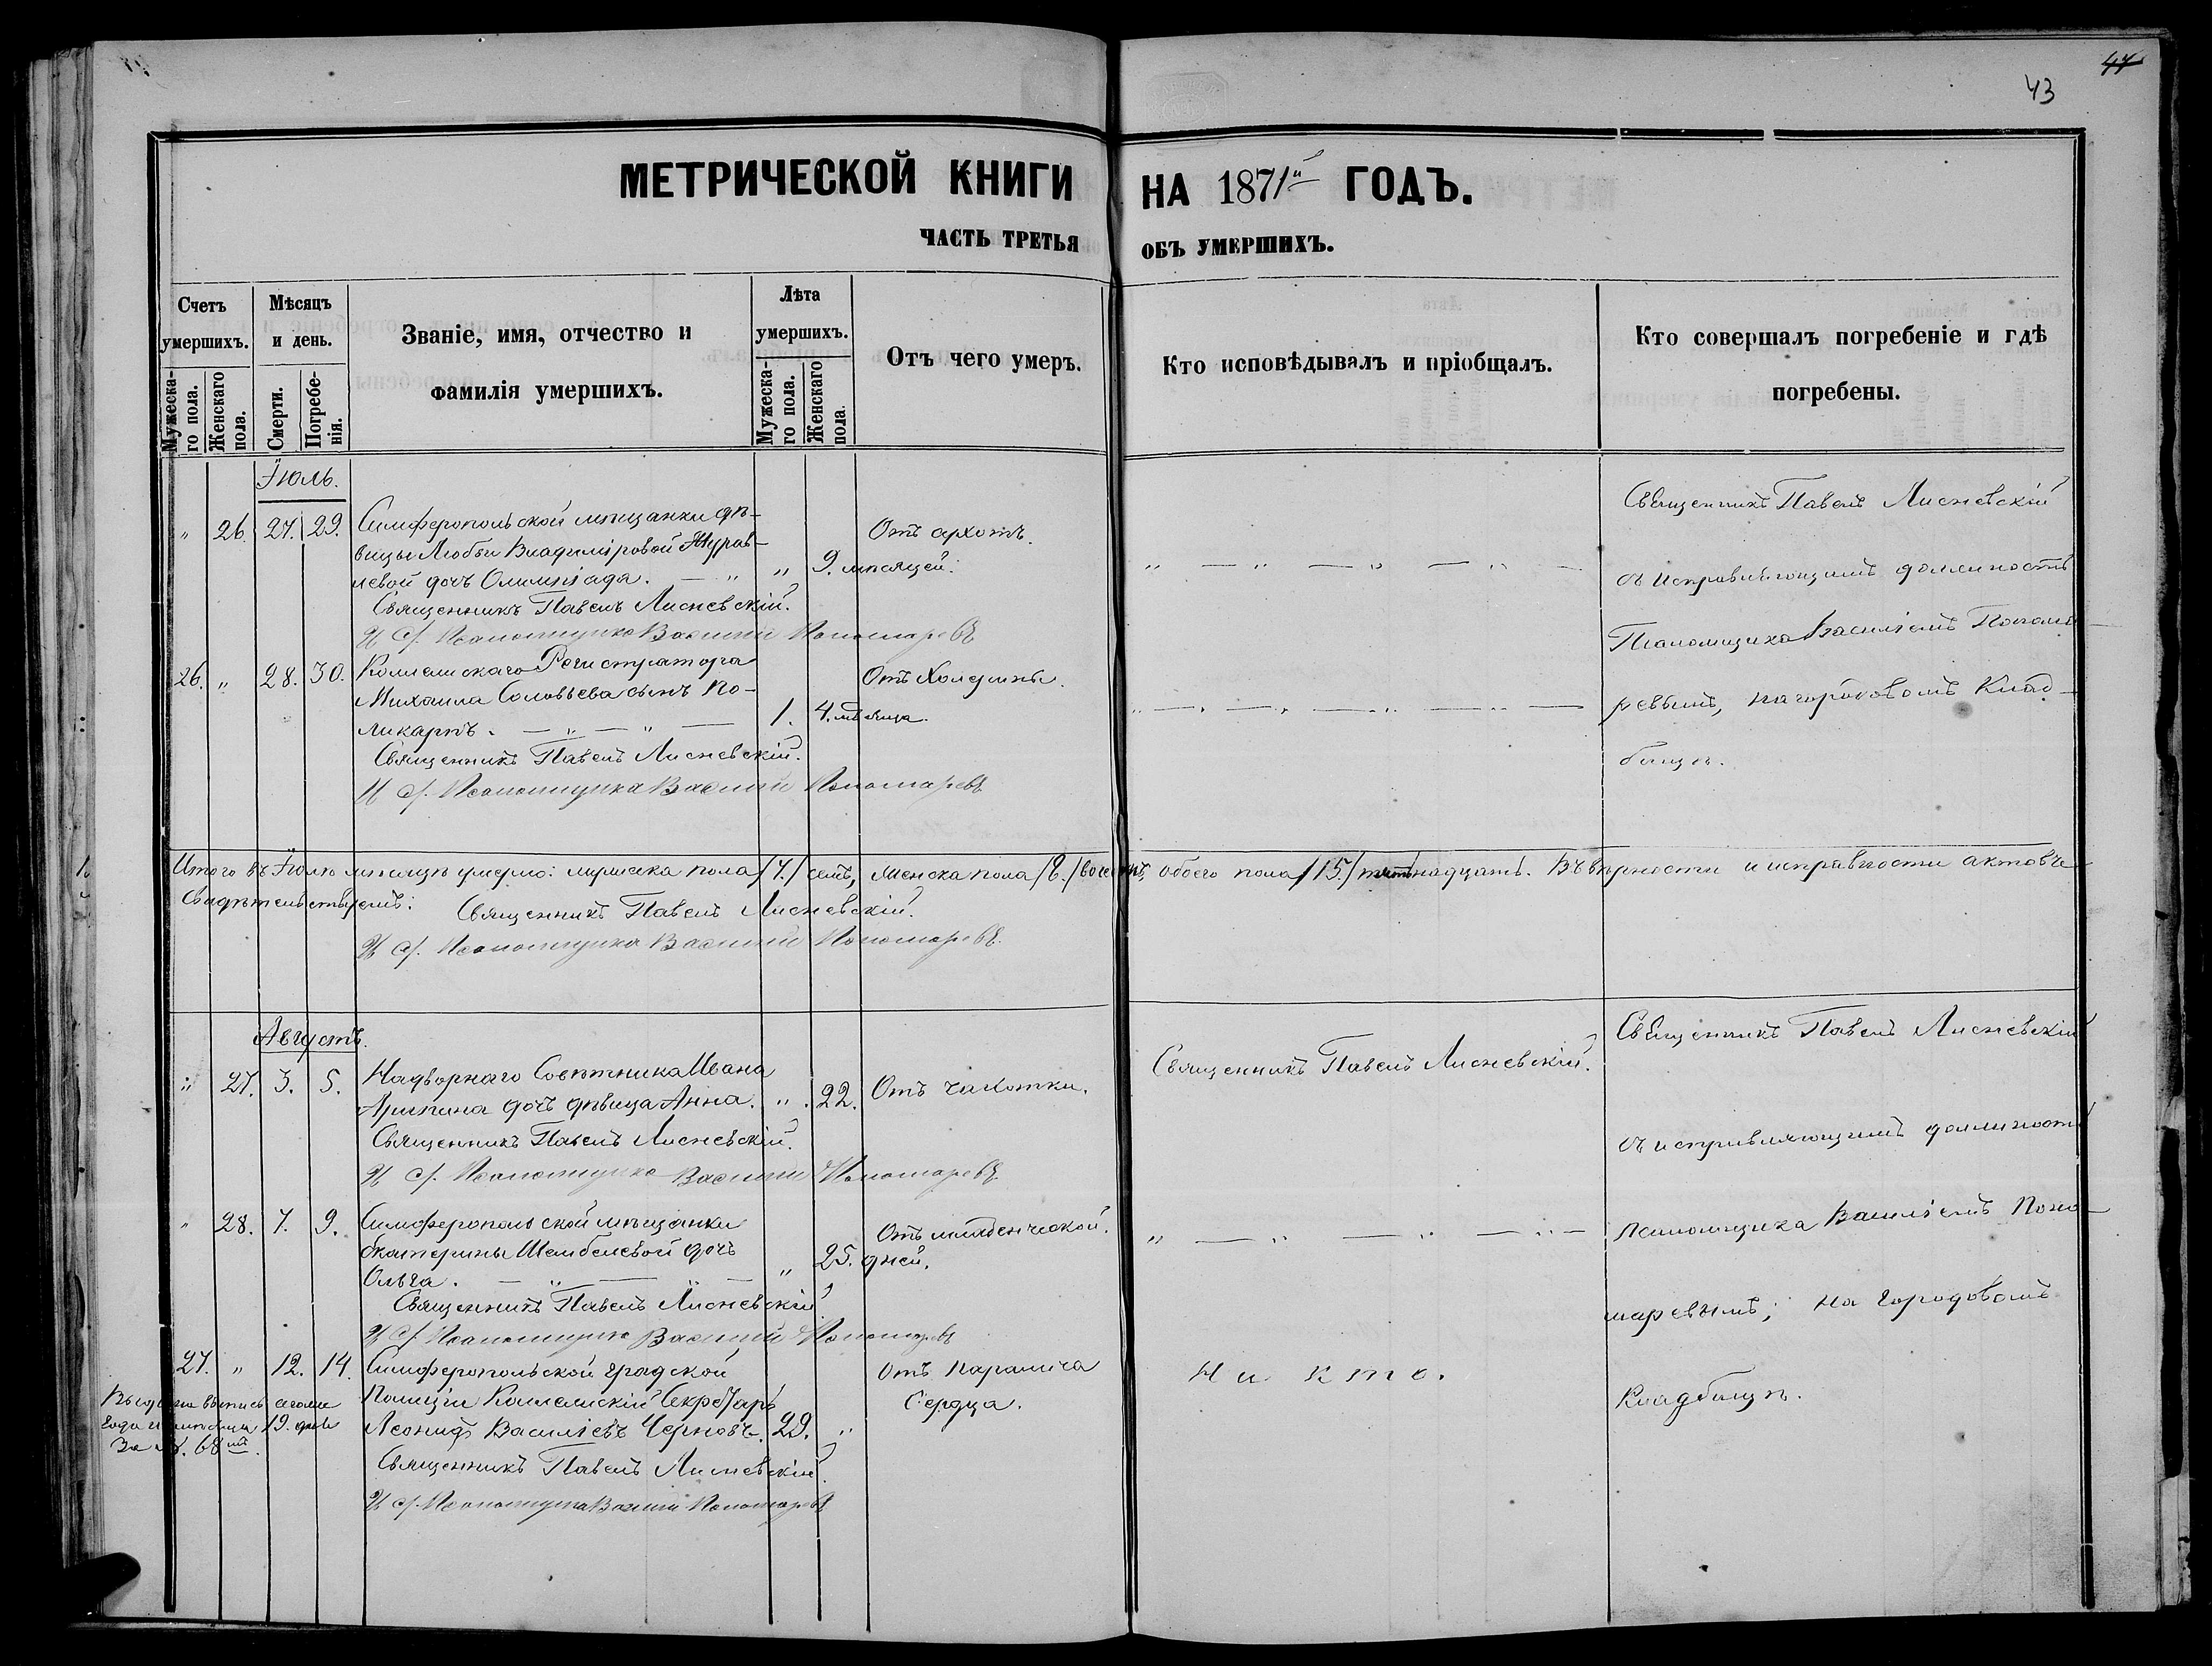 43
44
МЕТРИЧЕСКОЙ КНИГИ НА 1871й ГОДЪ.
ЧАСТЬ ТРЕТЬЯ ОБЪ УМЕРШИХЪ.
Счетъ умершихъ.
Мужескаго пола.
Женскаго пола.
Мѣсяцъ и день.
Смерти.
Погребенія.
Званіе, имя, отчество и фамилія умершихъ.
Лѣта умершихъ.
Мужескаго пола.
Женскаго пола.
Отъ чего умеръ.
Кто исповѣдывалъ и пріобщалъ.
Кто совершалъ погребеніе и гдѣ погребены.
Іюль.
" 26. 27. 29. Симферопольской мѣщанки дѣ-
вицы Любви Владиміровой Журав-
левой дочь Олимпіада. — " " 9. мѣсяцей.
Отъ
Священникъ Павелъ Лисневскій.
И. д. Псаломщика Василій Пономаревъ
26. " 28. 30. Коллежскаго Регистратора
Михаила Соловьева сынъ По-
ликарпъ. — " — " — 1. 4. мѣсяца.
Отъ Холерины.
Священникъ Павелъ Лисневскій.
И. д. Псаломщика Василій Пономаревъ
Священникъ Павелъ Лисневскій
съ исправляющимъ должность
Псаломщика Василіемъ Понома-
ревымъ, на городовомъ Клад-
бищѣ.
Итого въ Іюлѣ мѣсяцѣ умерло: мужеска пола /7./ семь, женска пола /8./ восемь, обоего пола /15./ пятнадцать. Въ вѣрности и исправности актовъ
свидѣтельствуемъ: Священникъ Павелъ Лисневскій.
И. д. Псаломщика Василій Пономаревъ.
Августъ.
" 27. 3. 5. Надворнаго Совѣтника Ивана
дочь дѣвица Анна. " 22. Отъ чахотки.
Священникъ Павелъ Лисневскій.
И. д. Псаломщика Василій Пономаревъ
Священникъ Павелъ Лисневскій.
" 28. 7. 9. Симферопольской мѣщанки
Екатерины Шембелевой дочь
Ольга. — " — " — " 25. дней.
Отъ младенческой.
Священникъ Павелъ Лисневскій
И. д. Псаломщика Василій Пономаревъ
27. " 12. 14. Симферопольской градской
Полиціи Коллежскій Секретарь
Леонидъ Василіевъ Черновъ. 29. "
Отъ паралича
Сердца.
Ни кто.
Священникъ Павелъ Лисневскій.
И. д. Псаломщика Василій Пономаревъ
года 19. дня
За №. 68мъ.
Священникъ Павелъ Лисневскій
съ исправляющимъ должность
псаломщика Василіемъ Поно-
маревымъ; на городовомъ
Кладбищѣ.